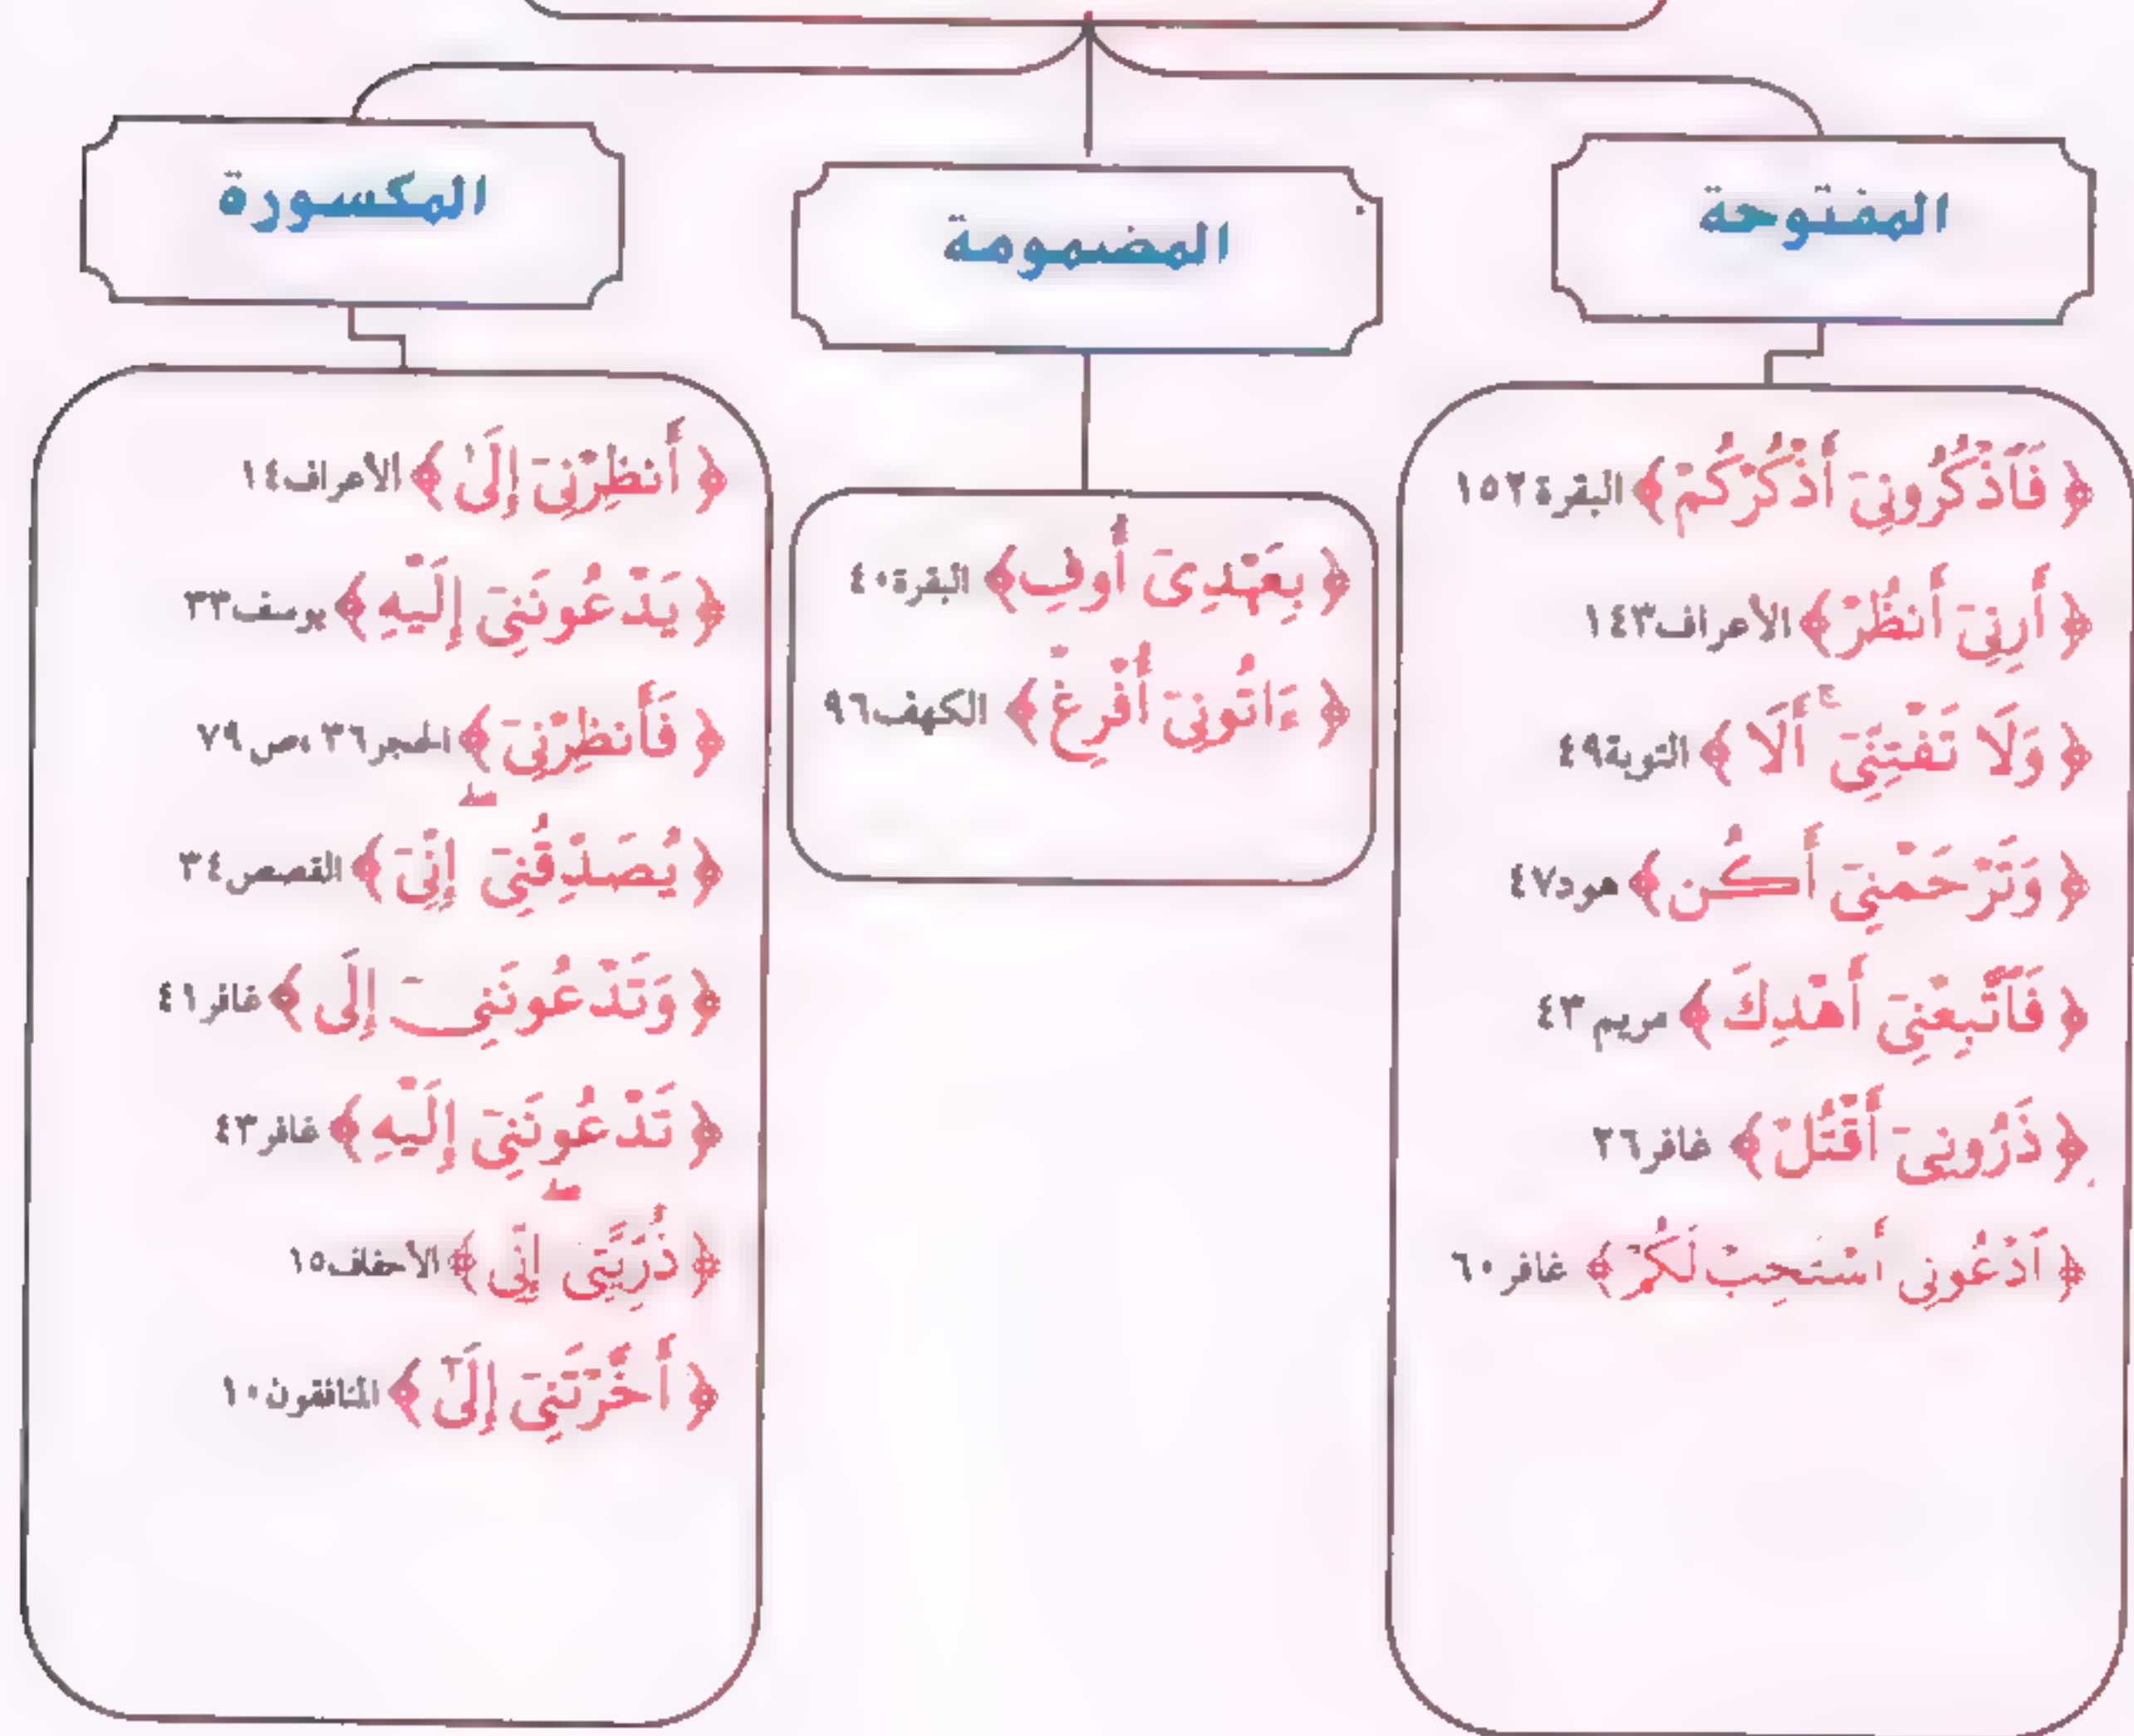 المفتوحة
﴿ فَٱذْكُرُونِىٓ أَذْكُرْكُمْ ﴾ البقرة١٥٢
﴿ أَرِنِىٓ أَنظُرْ ﴾ الأعراف١٤٣
﴿ وَلَا تَفْتِنِّىٓ ۚ أَلَا ﴾ التوبة٤٩
﴿ وَتَرْحَمْنِىٓ أَكُن ﴾ هود٤٧
﴿ فَٱتَّبِعْنِىٓ أَهْدِكَ ﴾ مريم٤٣
﴿ ذَرُونِىٓ أَقْتُلْ ﴾ غافر٢٦
﴿ ٱدْعُونِىٓ أَسْتَجِبْ لَكُمْ ﴾ غافر٦٠
المضمومة
﴿ بِعَهْدِىٓ أُوفِ ﴾ البقرة٤٠
﴿ ءَاتُونِىٓ أُفْرِغْ ﴾ الكهف٩٦
المكسورة
﴿ أَنظِرْنِىٓ إِلَىٰ ﴾ الأعراف١٤
﴿ يَدْعُونَنِىٓ إِلَيْهِ ﴾ يوسف٣٣
﴿ فَأَنظِرْنِىٓ ﴾ الحجر٣٦ ،ص٧٩
﴿ يُصَدِّقُنِىٓ ۖ إِنِّىٓ ﴾ القصص٣٤
﴿ وَتَدْعُونَنِىٓ إِلَى ﴾ غافر٤١
﴿ تَدْعُونَنِىٓ إِلَيْهِ ﴾ غافر٤٣
﴿ ذُرِّيَّتِىٓ ۖ إِنِّى ﴾ الأحقاف١٥
﴿ أَخَّرْتَنِىٓ إِلَىٰٓ ﴾ المنافقون١٠